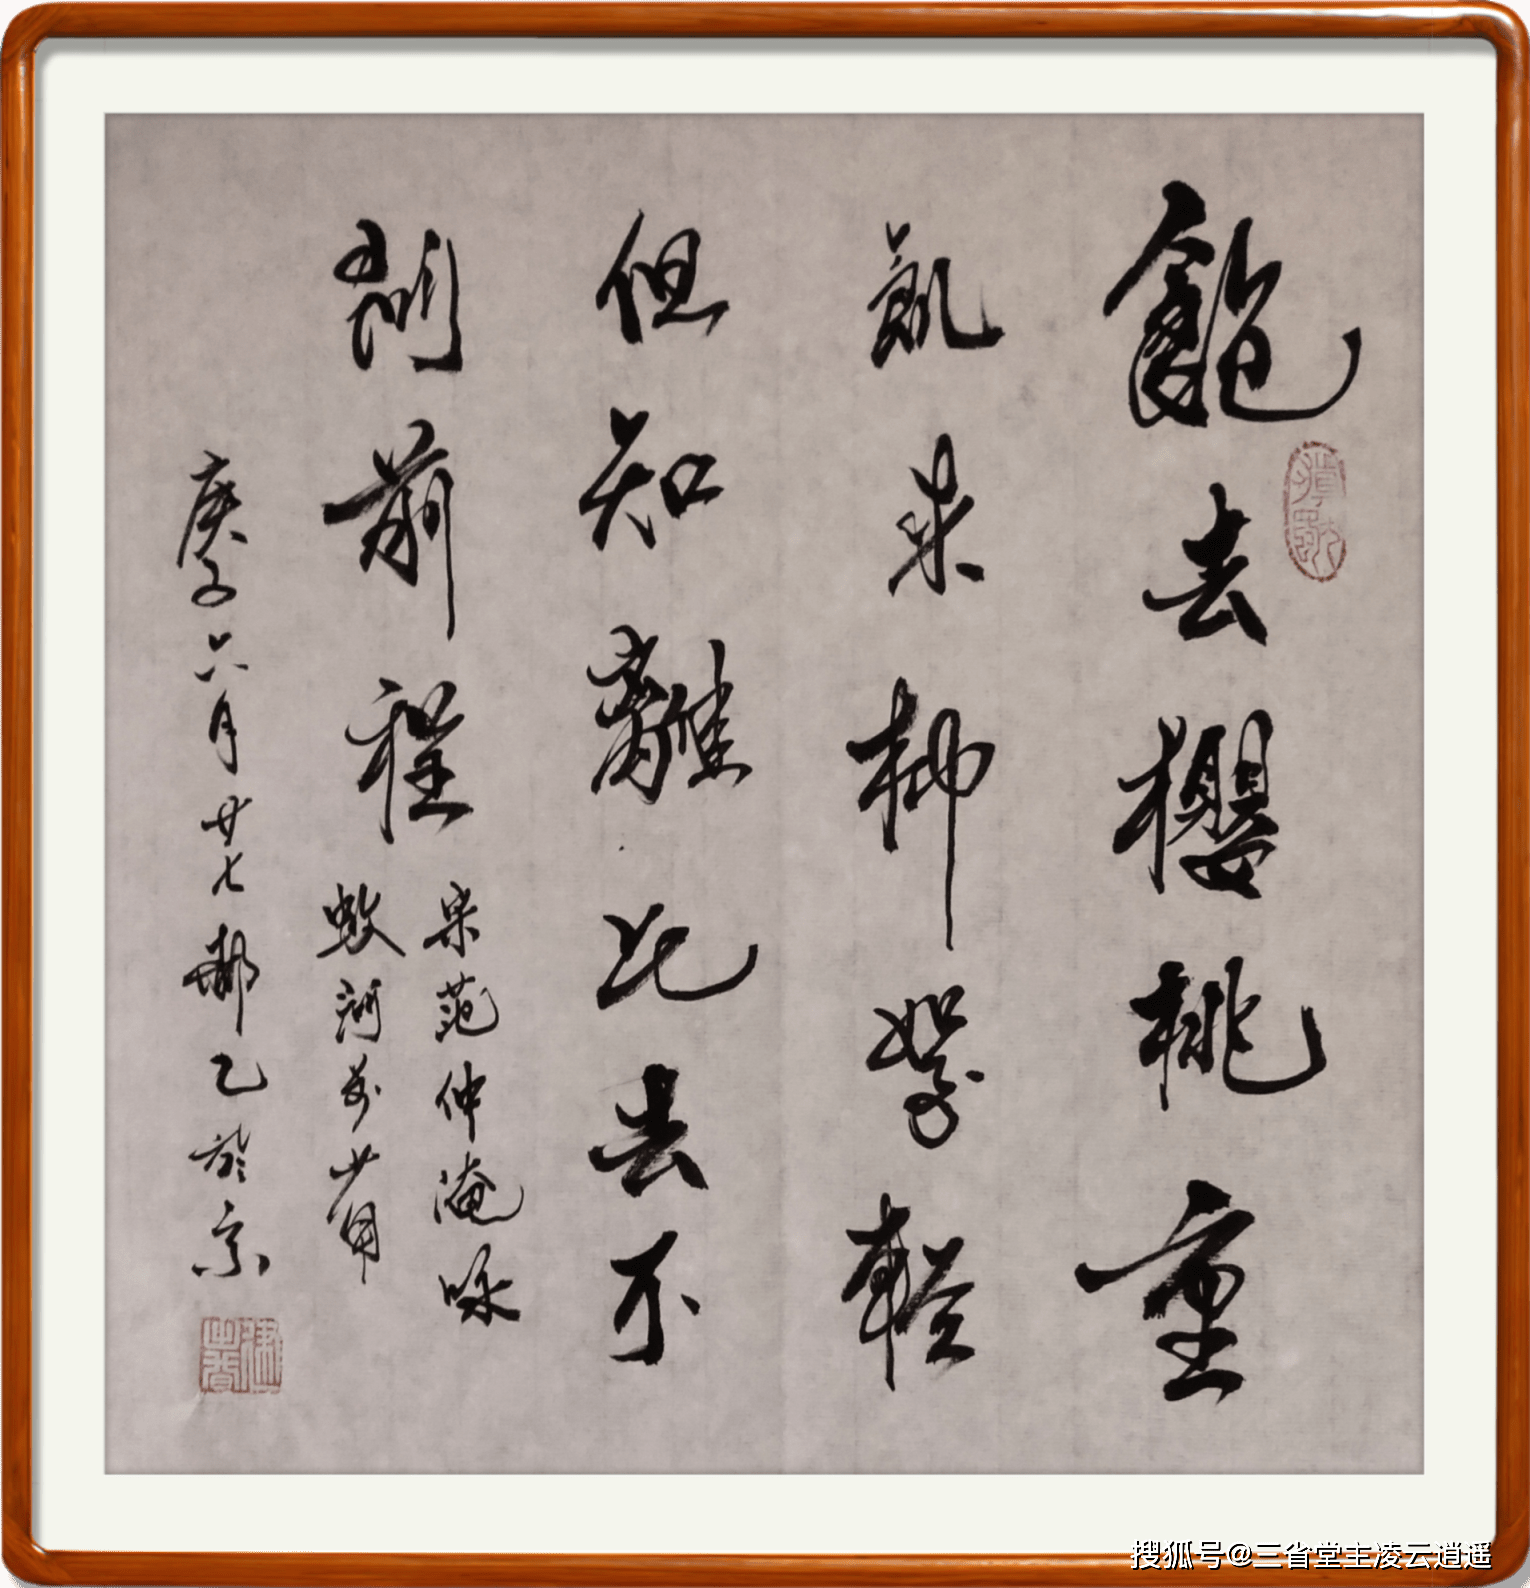 飽去櫻桃重
飢來柳絮輕
但知離此去不
問前程
宋范仲淹咏
蚊詞于
庚子六月廿七
乙於京
搜狐号@三省堂主凌云逍遥